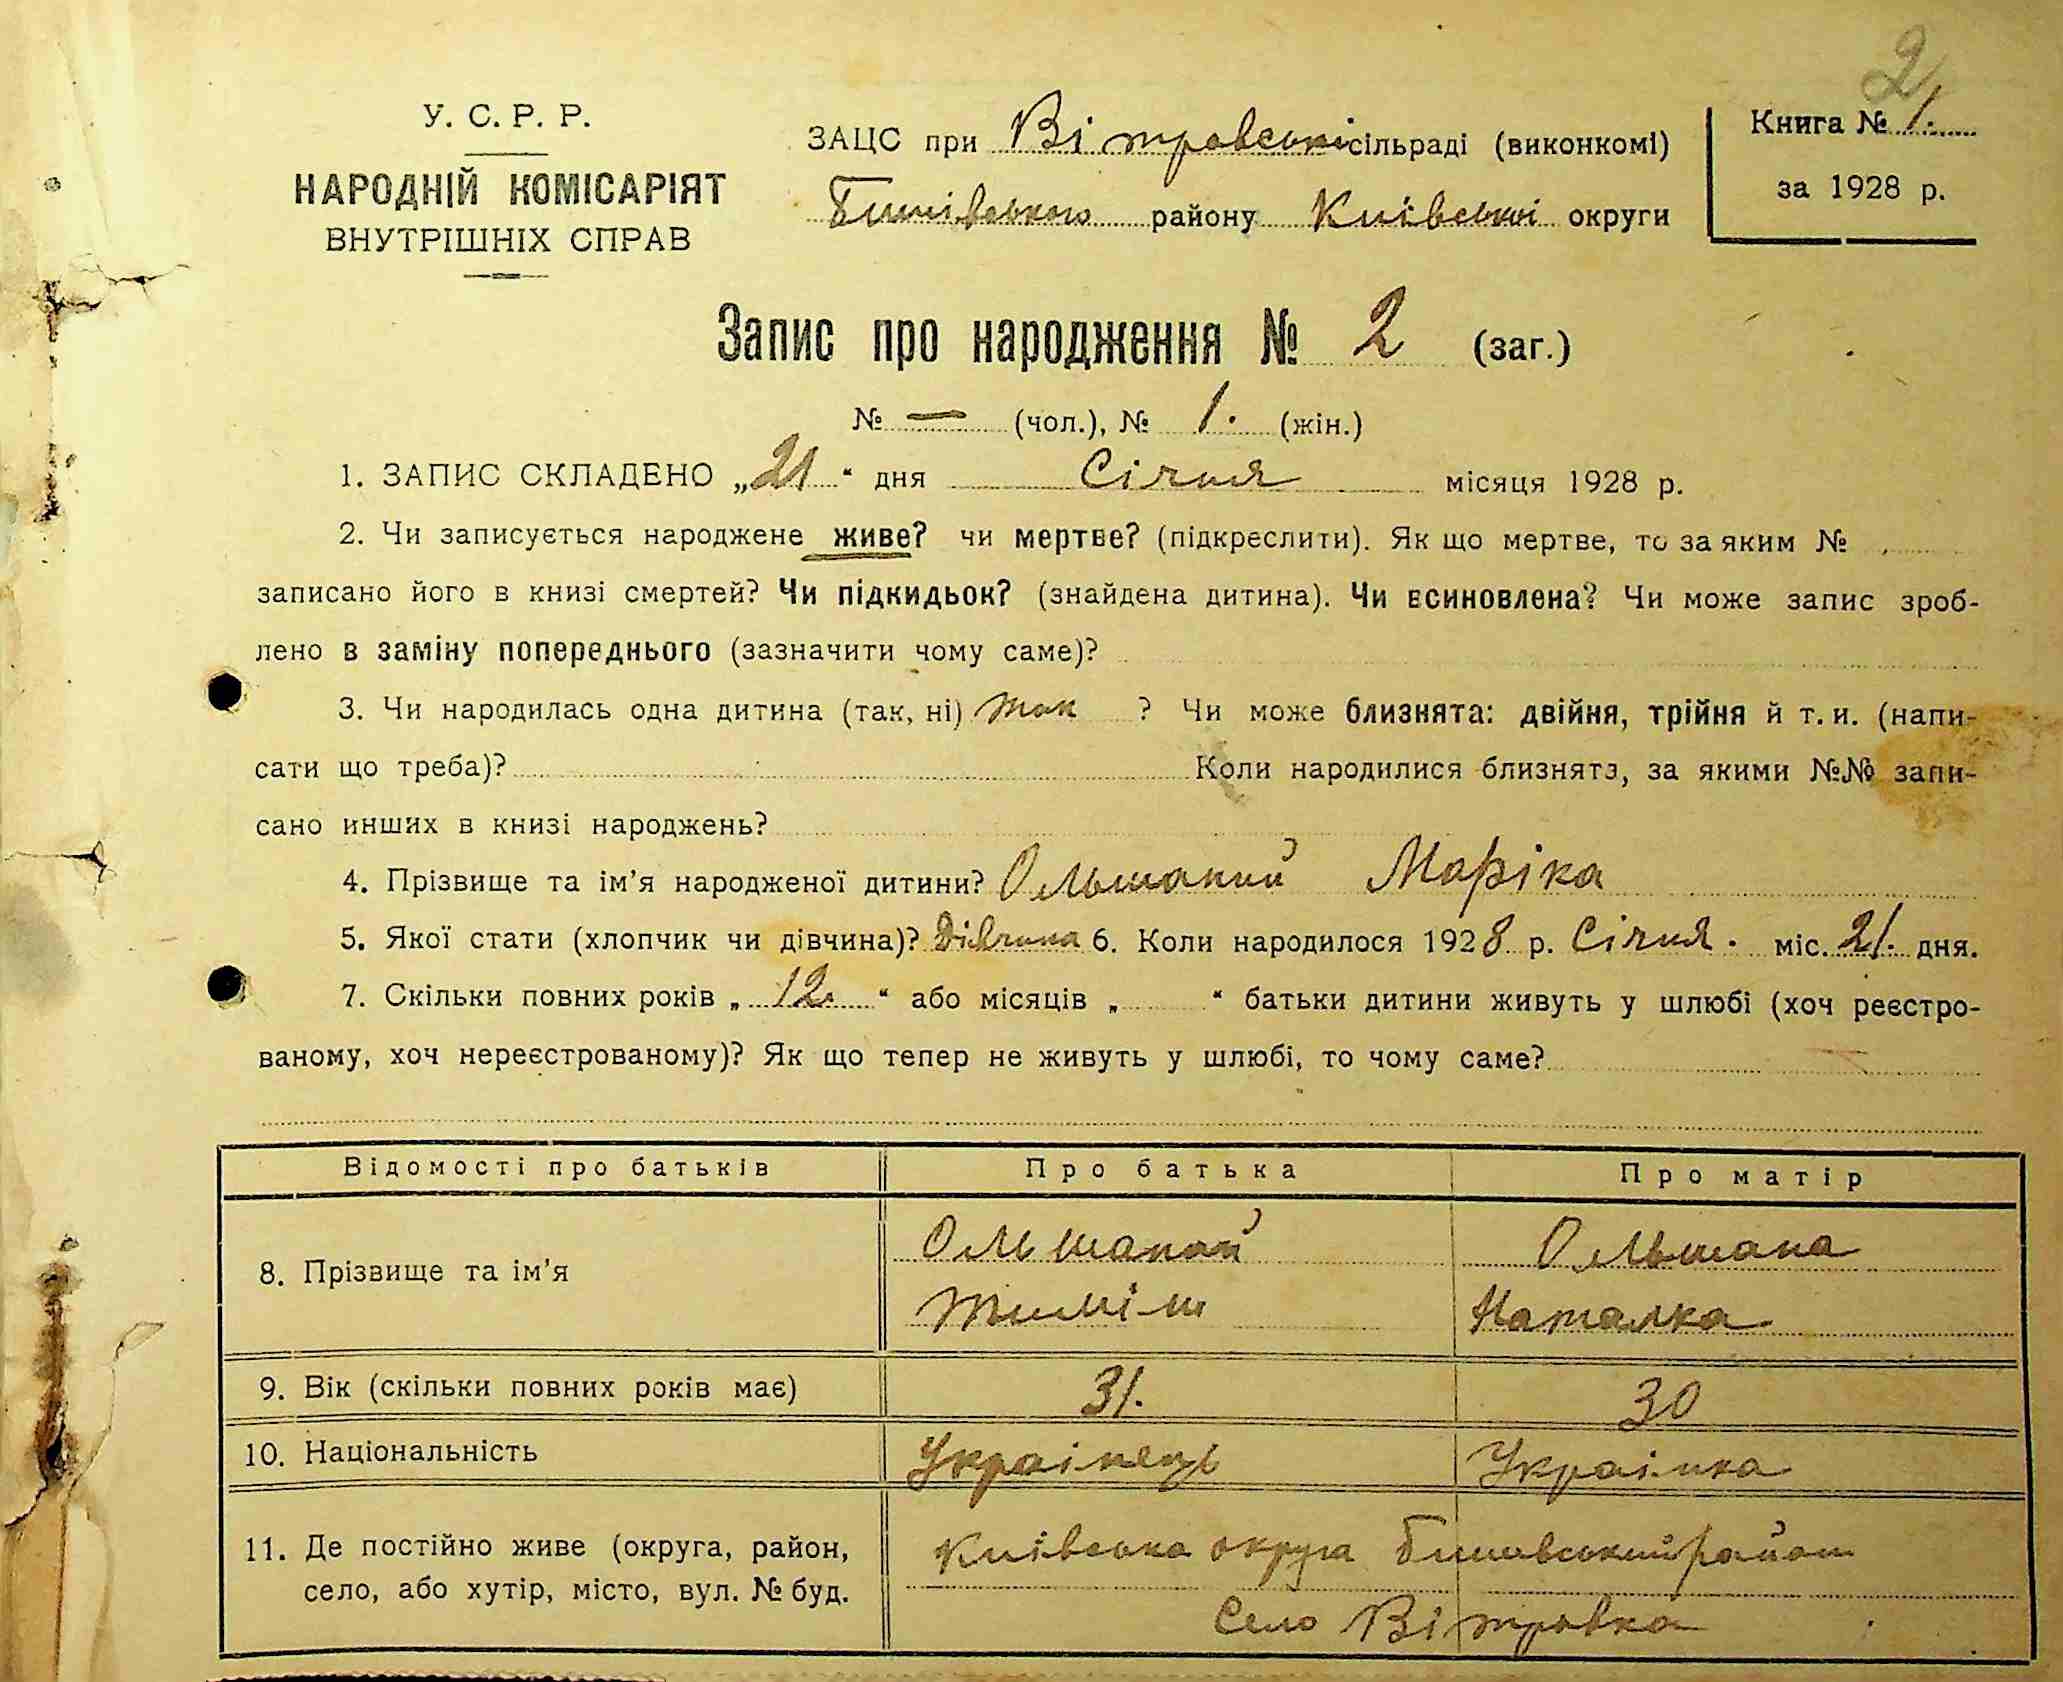 2
У. С. Р. Р.
НАРОДНІЙ КОМІСАРІЯТ
ВНУТРІШНІХ СПРАВ
ЗАЦС при Вітровські сільраді (виконкомі)
Бишівського району Київської округи
Книга № 1.
за 1928 р.
Запис про народження № 2 (заг.)
№ — (чол.), № 1. (жін.)
1. ЗАПИС СКЛАДЕНО „21“ дня Січня місяця 1928 р.
2. Чи записується народжене живе? чи мертве? (підкреслити). Як що мертве, то за яким №
записано його в книзі смертей? Чи підкидьок? (знайдена дитина). Чи всиновлена? Чи може запис зроб-
лено в заміну попереднього (зазначити чому саме)?
3. Чи народилась одна дитина (так, ні) так ? Чи може близнята: двійня, трійня й т. и. (напи-
сати що треба)? Коли народилися близнята, за якими №№ запи-
сано инших в книзі народжень?
4. Прізвище та ім’я народженої дитини? Ольшаний Маріка
5. Якої стати (хлопчик чи дівчина)? Дівчина 6. Коли народилося 1928 р. Січня. міс. 21. дня.
7. Скільки повних років „ 12. “ або місяців „ “ батьки дитини живуть у шлюбі (хоч реєстро-
ваному, хоч нереєстрованому)? Як що тепер не живуть у шлюбі, то чому саме?
Відомості про батьків Про батька Про матір
8. Прізвище та ім’я
Ольшаний
Тиміш
Ольшана
Наталка
9. Вік (скільки повних років має) 31. 30
10. Національність Українець Українка
11. Де постійно живе (округа, район,
село, або хутір, місто, вул. № буд.
Київська округа Бишівський район
Село Вітровка